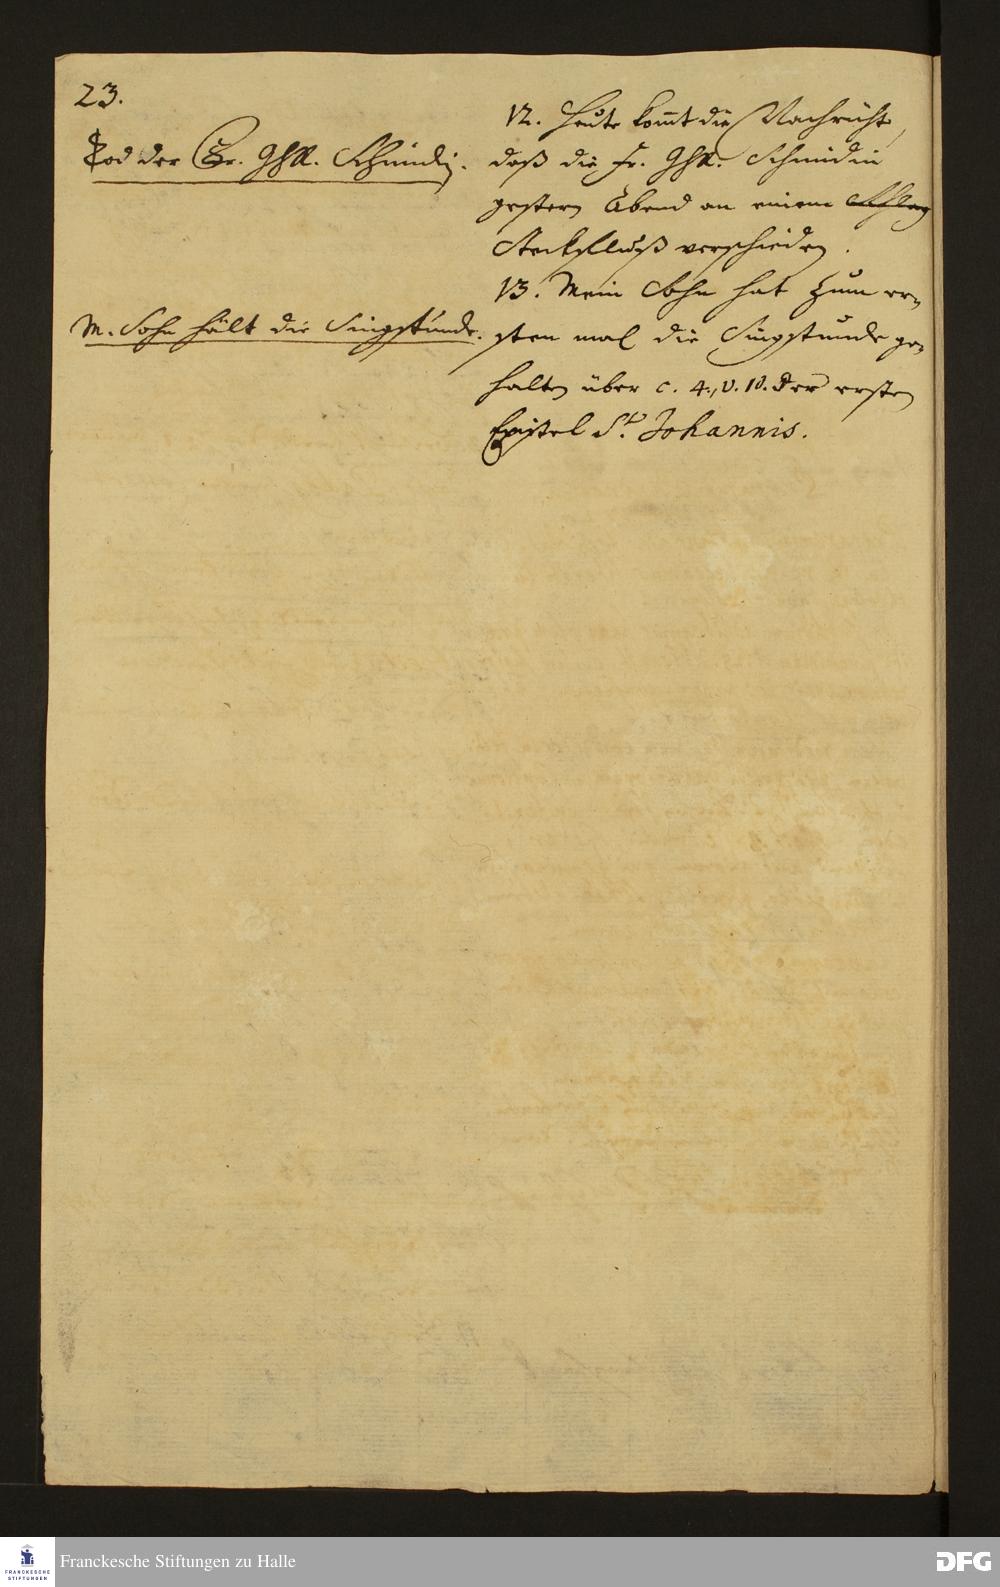 23.
Tod der Fr. GhR. Schmidin.
M. Sohn hält die Singstunde.
12. Heute kommt die Nachricht,
daß die Fr. GhR. Schmidin
gestern Abend an einem Schlag
Steckfluß verschieden.
13. Mein Sohn hat zum er-
sten mal die Singstunde ge-
halten über c. 4., v. 10. der ersten
Epistel St. Johannis.
FRANCKESCHE
STIFTUNGEN
Franckesche Stiftungen zu Halle
DFG